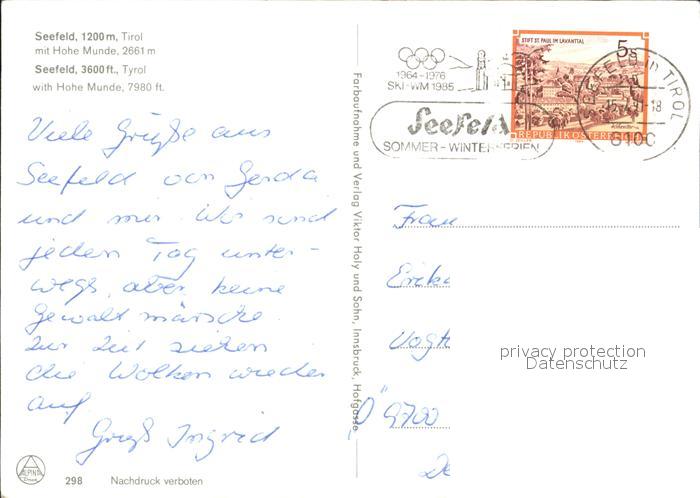 Seefeld, 1200 m, Tirol
mit Hohe Munde, 2661 m
Seefeld, 3600 ft., Tyrol
with Hohe Munde, 7980 ft.
Viele Grüße aus
Seefeld von Gerda
und mir. Wir sind
jeden Tag unter-
wegs, aber keine
Gewaltmärsche.
Zur Zeit ziehen
die Wolken wieder
auf
Gruß Ingrid
ALPINA
298 Nachdruck verboten
Farbaufnahme und Verlag Viktor Holy und Sohn, Innsbruck, Hofgasse
1964-1976
SKI-WM 1985
Seefeld
SOMMER-WINTERFERIEN
STIFT ST. PAUL IM LAVANTTAL
5 S
REPUBLIK ÖSTERREICH
SEEFELD IN TIROL
6100
Frau
Erika
Vogt
privacy protection
Datenschutz
9700